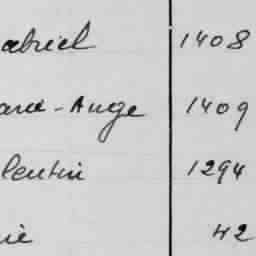 abriel 1408
arie-Ange 1409
lentin 1294
ie 42